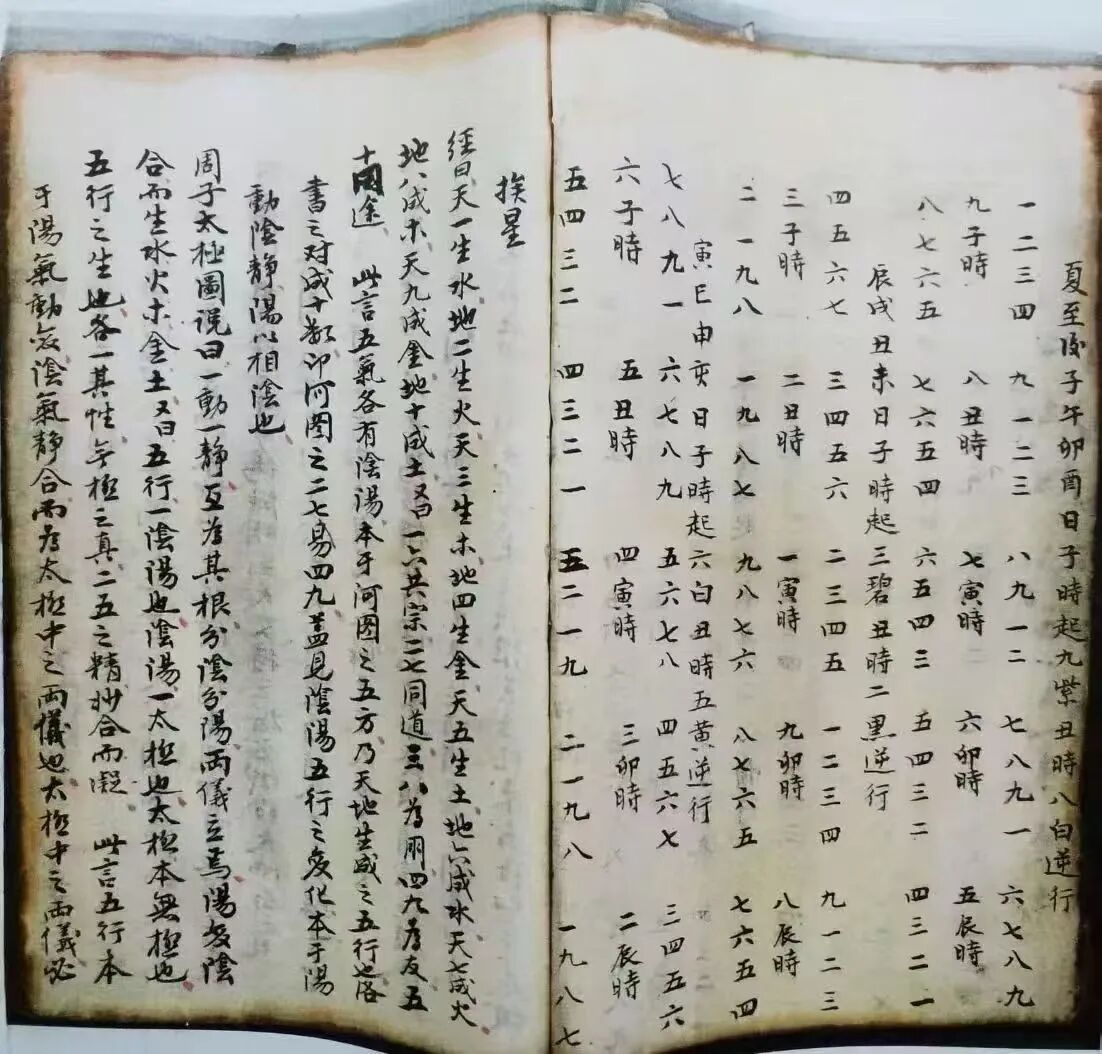 夏至後子午卯酉日子時起九紫丑時八白逆行
一二三四 九一二三 八九一二 七八九一 六七八九
九子時 八丑時 七寅時 六卯時 五辰時
八七六五 七六五四 六五四三 五四三二 四三二一
辰戌丑未日子時起三碧丑時二黑逆行
四五六七 三四五六 二三四五 一二三四 九一二三
三子時 二丑時 一寅時 九卯時 八辰時
二一九八 一九八七 九八七六 八七六五 七六五四
寅巳申亥日子時起六白丑時五黄逆行
七八九一 六七八九 五六七八 四五六七 三四五六
六子時 五丑時 四寅時 三卯時 二辰時
五四三二 四三二一 五二一九 二一九八 一九八七
挨星
經曰天一生水地二生火天三生木地四生金天五生土地六成水天七成火
地八成木天九成金地十成土又曰一六共宗二七同道三八為朋四九為友五
十同途 此言五氣各有陰陽本于河图之五方乃天地生成之五行也洛
書之对成十数卯河图之二七易四九盖見陰陽五行之変化本于陽
動陰静陽以相陰也
周子太極圖说曰一動一静互為其根分陰分陽两儀立焉陽変陰
合而生水火木金土又曰五行一陰陽也陰陽一太極也太極本無極也
五行之生也各一其性無極之真二五之精妙合而凝 此言五行本
于陽氣動変陰氣静合而為太極中之两儀也太極中之两儀必